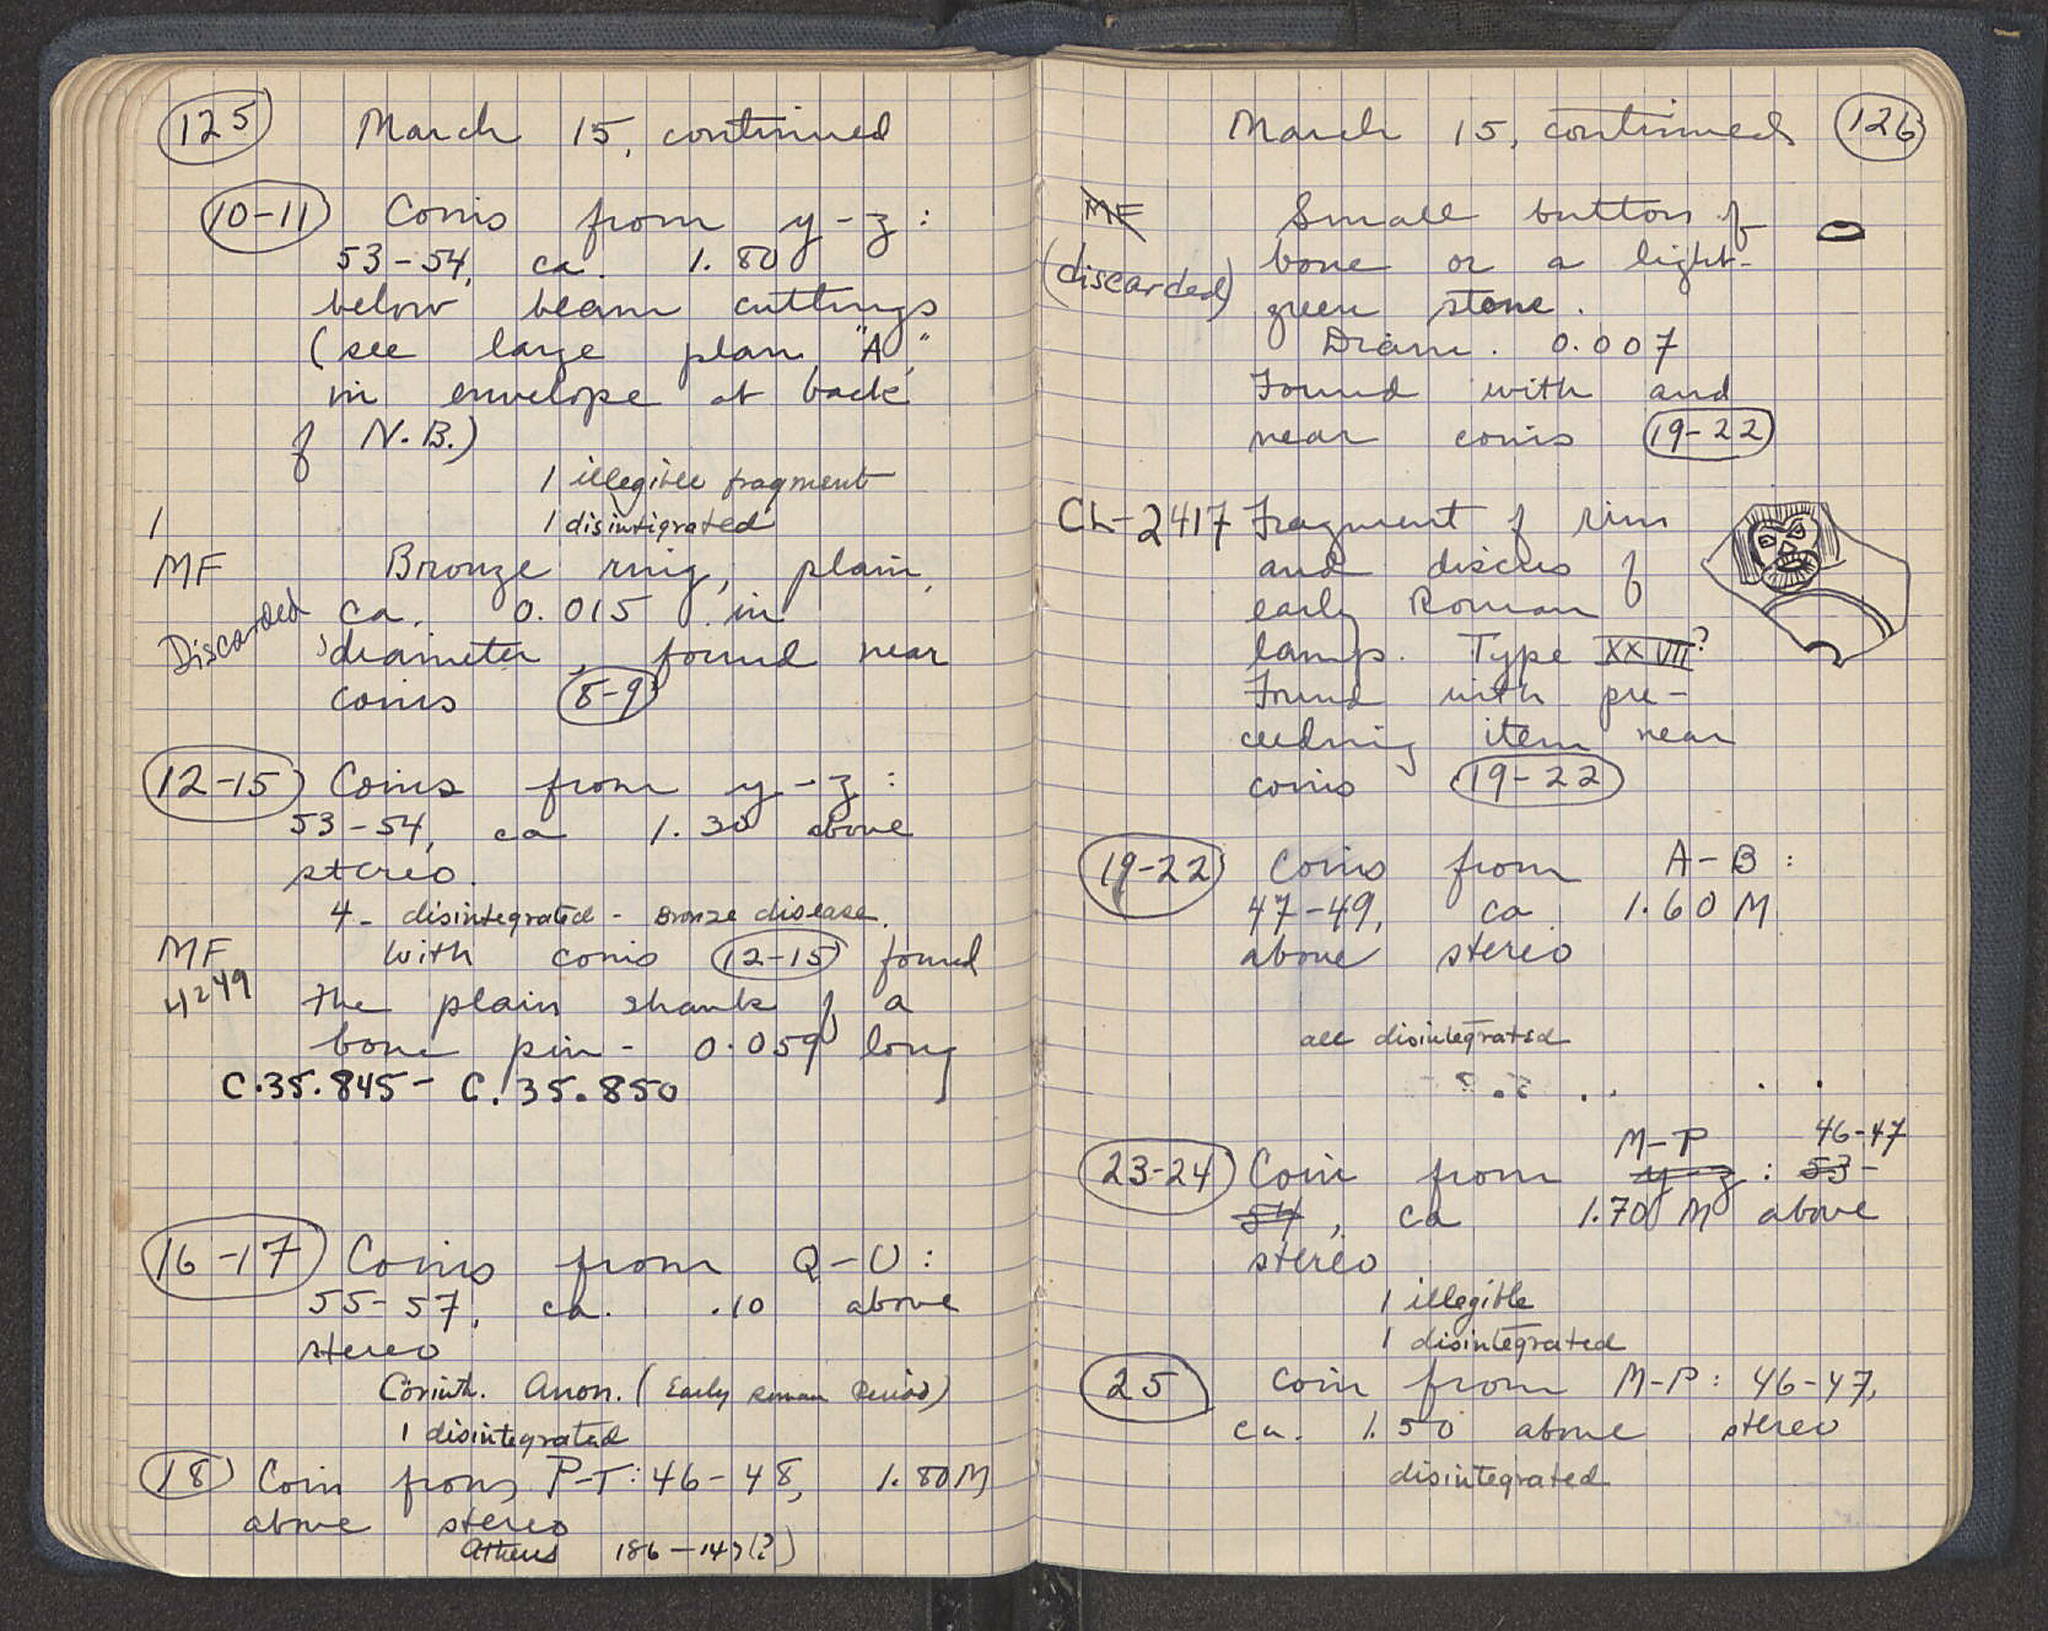 125 March 15, continued
10-11 Coins from y-z:
53-54, ca. 1.80
below beam cuttings
(see large plan "A,"
in envelope at back
of N.B.)
1 illegible fragment
1 disintigrated
1
MF Bronze ring, plain,
Discarded ca. 0.015 in
diameter, found near
coins 8-9
12-15 Coins from y-z:
53-54, ca 1.30 above
stereo.
4- disintegrated - Bronze disease.
MF with coins 12-15 found
4249 the plain shank of a
bone pin - 0.059 long
C.35.845- C.35.850
16-17 Coins from Q-U:
55-57, ca. .10 above
stereo
Corinth. Anon. (Early Roman Period)
1 disintegrated
18 Coin from P-T: 46-48, 1.80 M
above stereo
Athens 186-147(?)
March 15, continued 126
MF Small button of
(discarded) bone or a light-
green stone.
Diam. 0.007
Found with and
near coins 19-22
CL-2417 Fragment of rim
and discus of
early Roman
lamp. Type XXVII?
Found with pre-
ceeding item near
coins 19-22
19-22 Coins from A-B:
47-49, ca 1.60 M
above stereo
all disintegrated
M-P 46-47
23-24 Coin from y-z: 53-
54, ca 1.70 M above
stereo
1 illegible
1 disintegrated
25 Coin from M-P: 46-47,
ca. 1.50 above stereo
disintegrated